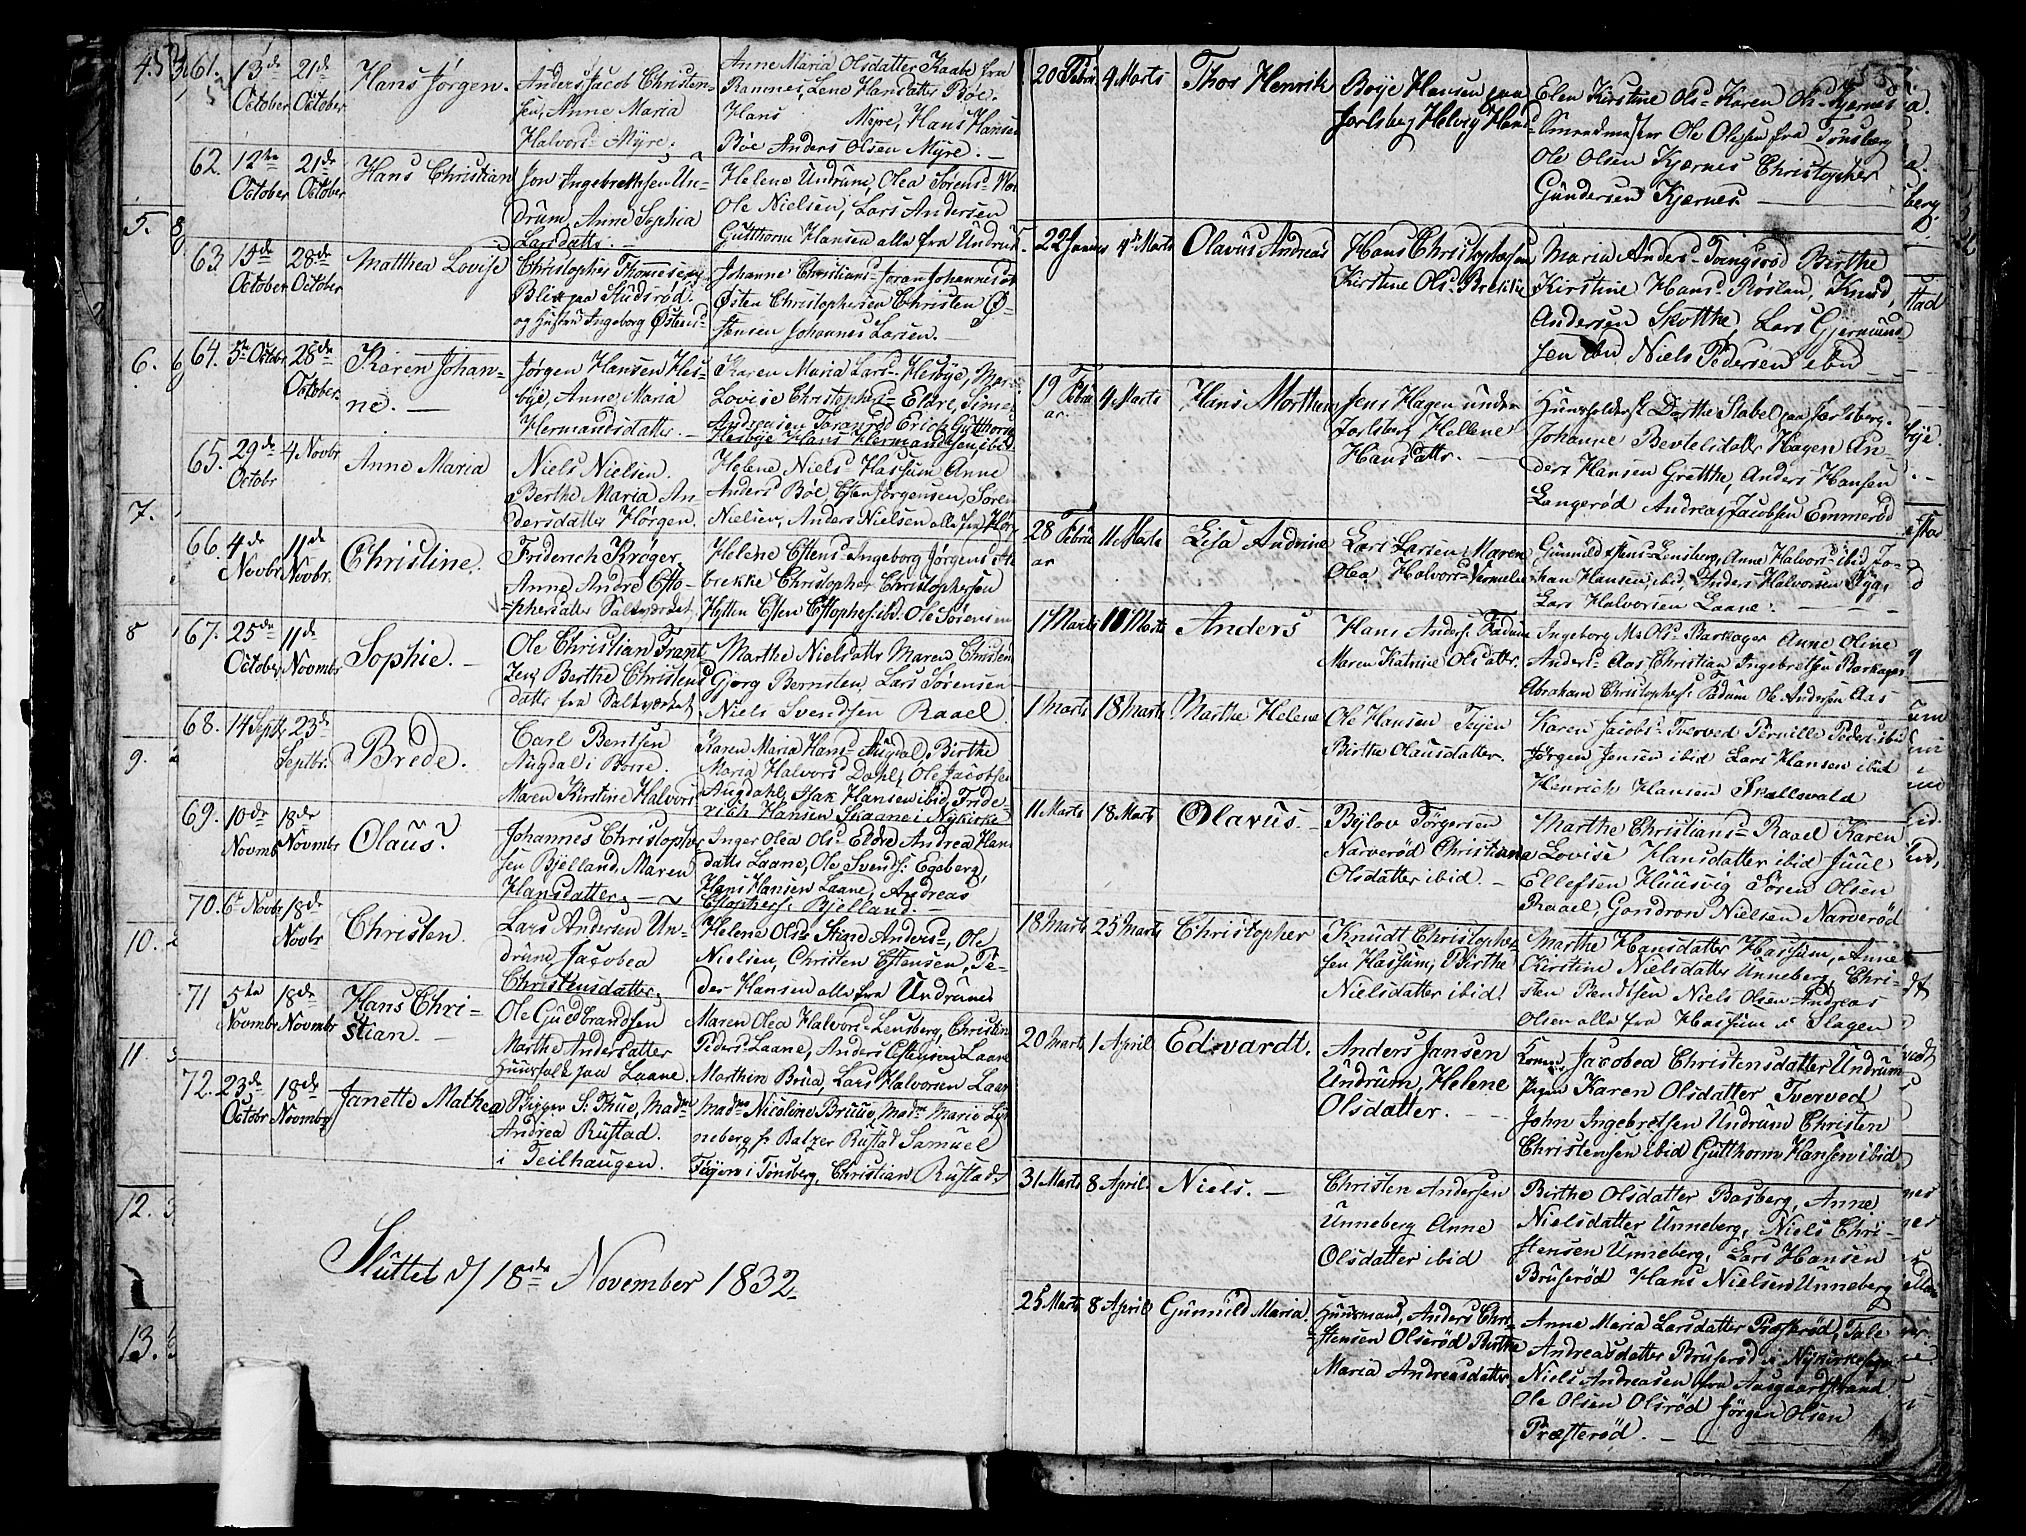 61. 13de October 21de October Hans Jørgen.
Anders Jacob Christen-
sen, Anne Maria
Halvors- Myre.
Anne Maria Olsdatter Raabe fra
Ramnes, Lene Hansdatter Bøe.
Hans Myre, Hans Hansen
Bøe Anders Olsen Myre. —
62. 12te October 21de October Hans Christian
Jon Ingebrethsen Un-
drum, Anne Sophia
Larsdattr. —
Helene Undrum, Olea Sørensd
Ole Nielsen, Lars Andersen
Gutthorm Hansen alle fra Undrum
63. October 28de October Matthea Lovise
Christopher Thomesen
Blix paa Studsrød.
og Hustru Ingeborg Østens-
Johanne Christians- Joran Johannesd
Østen Christophersen Christen Ø-
stensen Johannes Larsen.
64. 5te Octobr 28de October Karen Johan-
ne. —
Jørgen Hansen Hes-
bye, Anne Maria
Hermandsdatter. —
Karen Maria Lars- Hesbye, Mar-
Lovise Christophers- Eldre, Simen
Andreasen Foranrød Erich Gutthorm
Hesbye Hans Hermandsen ibid
65. 29de Octobr 4 Novbr Anne Maria
Niels Nielsen.
Berthe Maria An
dersdatter Hørgen.
Helene, Niels Hassum Anne
Anders Bøe, Esten Jørgensen, Søren
Nielsen, Anders Nielsen alle fra Hør
66. 4de Novbr. 11de Novbr. Christine.
Friderich Krøger
Anne Andre Efto-
phersdatter Saltværket
Helene Estens- Ingeborg Jørgens
brekke Christopher Christophersen
Hytten Esten Eftophers. ibd. Ole Sørensen
67. 25de October 11de Novmbr Sophie. —
Ole Christian Frant
zen, Berthe Christens
datter fra Saltværket
Marthe Nielsdattr Maren Christen
Gjorg Bernsten, Lars Sørensen
Niels Svendsen Raael
68. 14 Septr. 23de Septbr. Brede.
Carl Bentsen
Augdal i Borre.
Maren Kirstine Halvors
Karen Maria Hans- Augdal, Birthe
Maria Halvors Dahl, Ole Jacobsen
Augdahl, Isak Hansen ibid, Fride-
rich Hansen Skaane i Nykirke
69. 10de Novmb 18de Novmbr Olaus.
Johannes Christopher
sen Bjelland, Maren
Hansdatter. —
Inger Olea Ols- Eldre Andrea Han
datter Laane, Ole Svends: Egeberg,
Hans Hansen Laane, Andreas
Eftophers: Bjelland. —
70. 6te Novbr 18de Novbr Christen.
Lars Andersen Un-
drum, Jacobea
Christensdatter,
Helene Ols- Stine Anders-, Ole
Nielsen, Christen Estensen, Pe-
der Hansen alle fra Undrum
71 5te Novmbr 18de Novmbr Hans Chri-
stian. —
Ole Gudbrandsen
Marthe Andersdatter
Huusfolk paa Laane.
Maren Olea Halvors- Lensberg, Christin
Peders- Laane, Anders Estensen Laane
Marthin Brua, Lars Halvorsen Laan
72. 23de Octobr 18de Novmbr Janette Mathea
Thigger S. Thue, Madme
Andrea Rustad.
i Teilhaugen.
Madme Nicoline Bruue, Madm Marie Lÿn
neberg, Hr Balzer Rustad Samuel
Fogen i Tønsberg, Christian Rustad.
Sluttet d/ 18nde November 1832.
20 Febru 4 Marts Thor Henrik
Bøye Hansen paa
Jarlsberg Helvig Hans-
Elen Kirstine Ols- Karen Ols- Kjernes
Smeedmester Ole Olesen fra Tønsberg
Ole Olsen Kjærnes Christopher
Gundersen Kjærnes. —
22 Januar 4de Marts Olavus Andreas
Hans Christophersen
Kirstine Ols- Brekke
Maria Anders- Tvingsrød Birthe
Kirstine Hans- Røslan, Knud
Andersen Skotthe, Lars Gjermund
sen ibd Niels Pedersen ibd
19 Februar 4 Marts Hans Morthen
Jens Hagen under
Jarlsberg Hellene
Hansdattr. —
Huusholdersk Dorthe Stabel paa Jarlsberg.
Johanne Bertelsdatter Hagen An-
ders Hansen Gretthe, Anders Hansen
Langerød Andreas Jacobsen Emmerød
28 Februar 11 Marts Lisa Andrine
Lars Larsen Maren
Olea Halvors- Vermelie
Gunnild Estens- Lensberg, Anne Halvors- ibid Jo-
han Hansen, ibid, Anders Halvorsen
Lars Halvorsen Laane.
17 Marts 18 Marts Anders
Hans Anders: Fadum
Maren Katrine Olsdatter.
Ingeborg M. Ols- Barkager Anne Oline
Anders- Aas Christian Ingebretsen Barkager
Abraham Christophers: Fadum Ole Andersen Aas
1 Marts 18 Marts Marthe Helene
Ole Hansen Teijen
Birthe Olausdatter.
Karen Jacobs- Tverved Pernille Peders- ibid
Jørgen Jensen ibid Lars Hansen ibid
Henrich Hansen Skallevald
11 Marts 18 Marts Olavus. —
Bÿlov Törgersen
Narverød Christiana
Olsdatter ibid. —
Marthe Christians- Raael Karen
Lovise Hansdatter ibid Juul
Ellefsen Huusvig Søren Olsen
Raael, Gondron Nielsen Narverød
18 Marts 25 Marts Christopher
Knudt Christopher-
sen Hassum, Birthe
Nielsdatter ibid.
Marthe Hansdatter Hassum, Anne
Kirstine Nielsdatter Unneberg Chri-
sten Bendtsen Niels Olsen Andreas
Olsen alle fra Hassum i Slagen
20 Marts 1 April Edvardt.
Anders Jansen
Undrum, Helene
Olsdatter. —
Konen Jacobea Christensdatter Undrum
Pigen Karen Olsdatter Tverved
John Ingebretsen Undrum Christen
Christensen ibid Gutthorm Hansen ibid
31 Marts 8 April Niels. —
Christen Andersen
Unneberg Anne
Olsdatter ibid
Birthe Olsdatter Basberg, Anne
Nielsdatter Unneberg, Niels Chri-
stensen Unneberg, Lars Hansen
Bruserød Hans Nielsen Unneberg
25 Marts 8 April Gunnild Maria.
Huusmand, Anders Chri-
stensen Olsrød Birthe
Maria Andreasdatter.
Anne Maria Larsdatter Præsterød, Tale
Andreasdatter Bruserød i Nykirkesogn
Niels Andreasen fra Aasgaardstrand
Ole Olsen Olsrød Jørgen Olsen
Præsterød. —